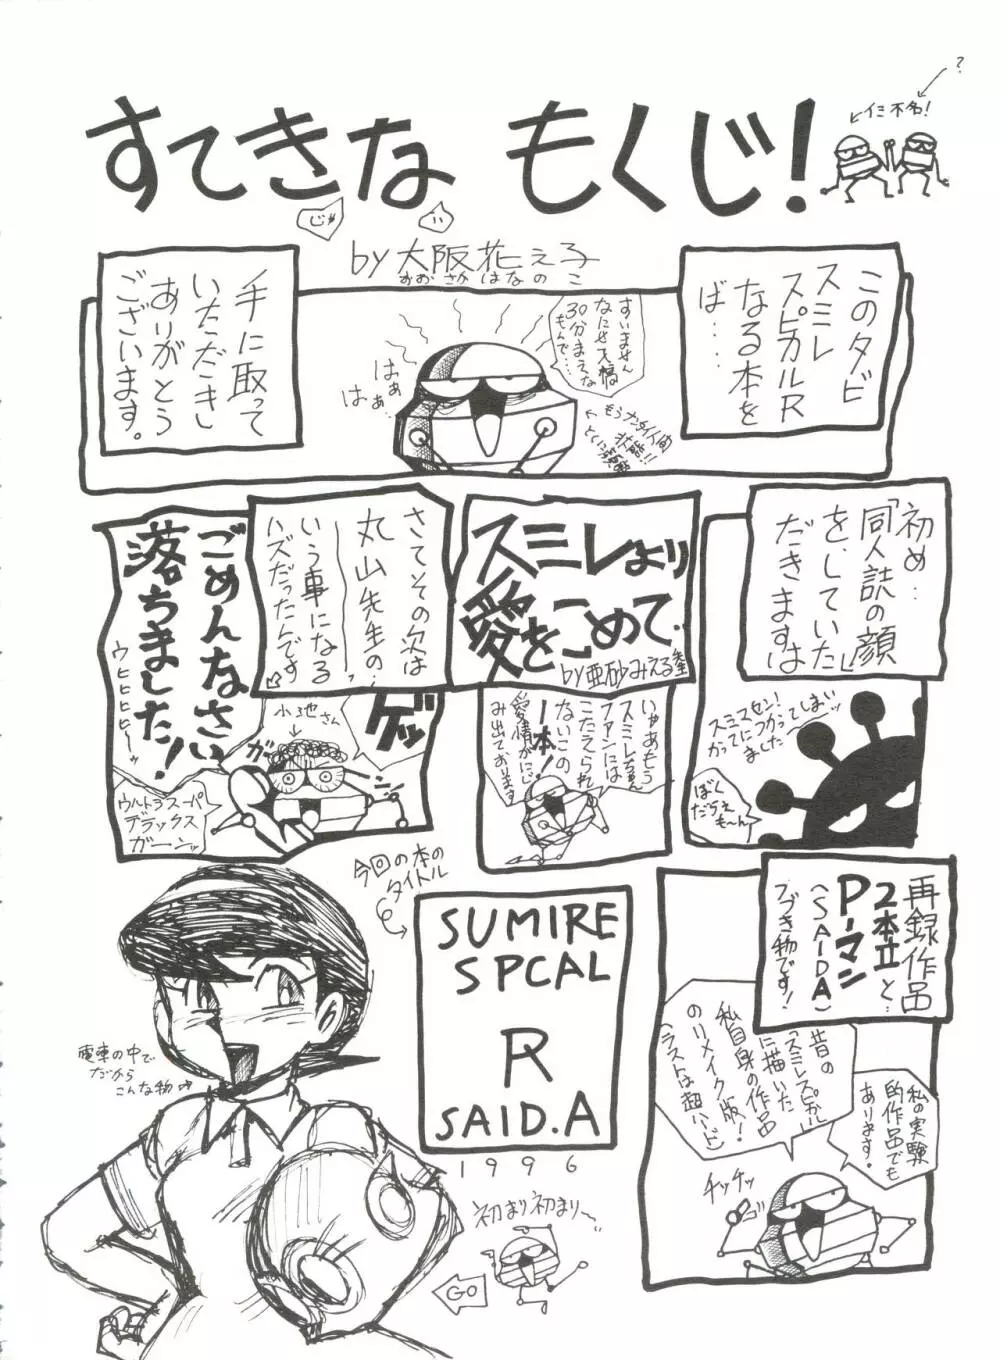 ?
イミ不名!
すてきな もくじ!
じゅ
by 大阪花え子
おおさか はなのこ
このタビ
スミレ
スピカルR
なる本を
ば…
すいません
なにせ天橋
30分まえな
もんで…
はぁ
はぁ…
手に取って
いただきし
ありがとう
ございます。
初め…
「同人誌の顔」
をしていた
だきますは
スミマセン!
かってにつかってしまいッ
ました
ぼく
だらえ
も〜ん
スミレより
愛をこめて.
by 亜砂みえる
いやあもう
スミレちゃん
ファンには
こたえられ
ないこの
一本!
愛情がにじ
み出ております
さてその次は
丸山先生の…
いう事になる
ハズだったんです
ごめんなさい
落ちました!
ウヒヒヒヒ〜ッ
小池さん
ゲッ
ガ
ン
ウルトラスーパー
デラックス
ガーンッ
再録作品
2本立と…
P-マン
(SAIDA)
つづき物です!
昔の
「スミレスピカル」
に描いた
私自身の作品
のリメイク版!
(ラストは超ハード)
私の実験
的作品でも
あります。
チッチッ
今回の本の
タイトル
SUMIRE
SPCAL
R
SAID.A
1996
電車の中で
だから
こんな物
初まり初まり〜
GO